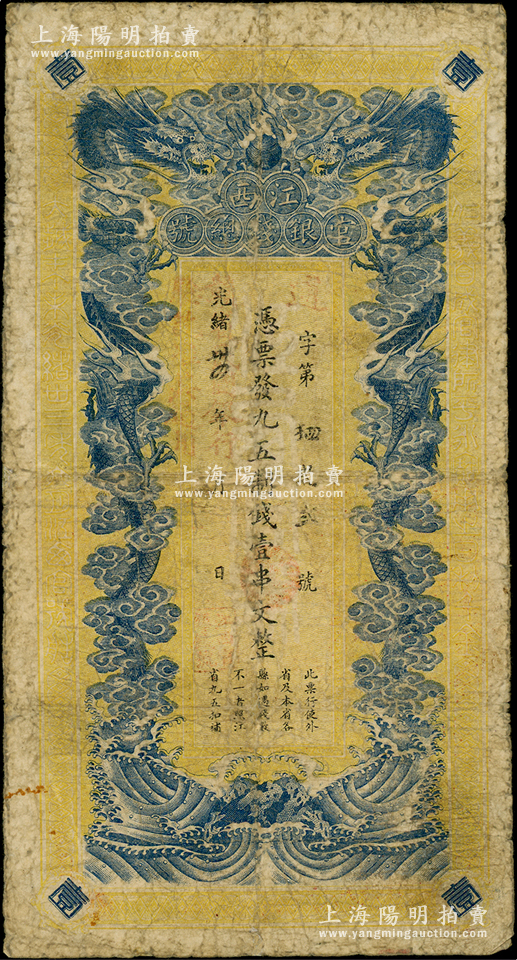 上海陽明拍賣
www.yangmingauction.com
上海陽明拍賣
www.yangmingauction.com
壹
壹
江西
官銀錢總號
字第 號
憑票發九五制錢壹串文整
光緒卅四年 日
此票行使外
省及本省各
縣如憑錢價
不一者照江
省九五扣補
上海陽明拍賣
www.yangmingauction.com
壹
壹
上海陽明拍賣
www.yangmingauction.com